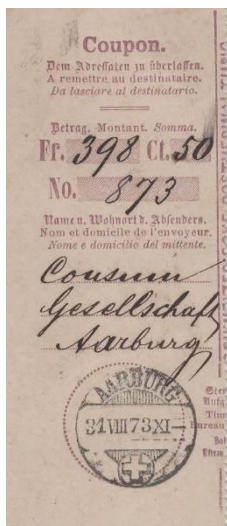 Coupon.
Dem Adressaten zu überlassen.
A remettre au destinataire.
Da lasciare al destinatario.
Betrag. Montant. Somma.
Fr. 398 Ct. 50
No. 873
Name u. Wohnort d. Absenders.
Nom et domicile de l'envoyeur.
Nome e domicilio del mittente.
Consum
Gesellschaft
Aarburg
AARBURG
31 VIII 73 XI—